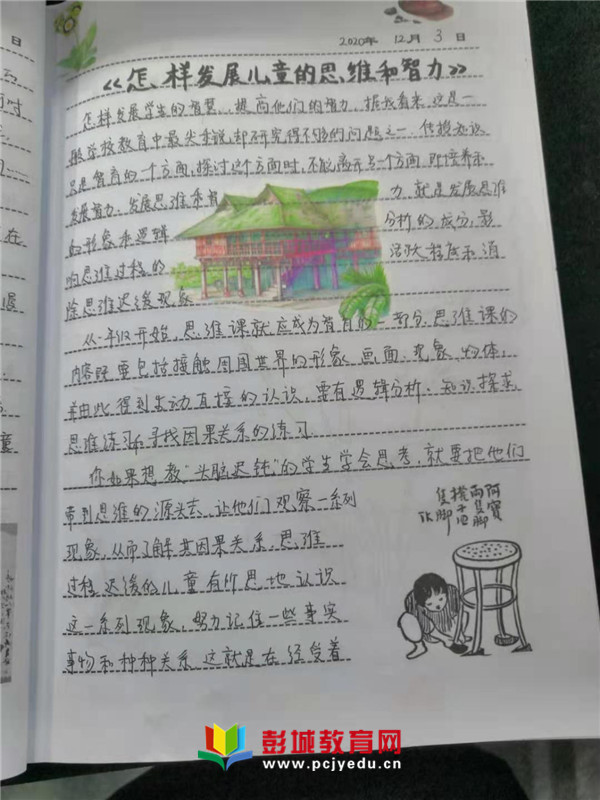 2020年 12月 3日
《怎样发展儿童的思维和智力》
怎样发展学生的智慧、提高他们的智力，据我看来，这是一
般学校教育中最尖锐却研究得不够的问题之一，传授知识
只是智育的一个方面，探讨这个方面时，不能离开另一个方面，即培养和
发展智力。发展思维和智 力，就是发展思维
的形象和逻辑 分析的成分，影
响思维过程的 活跃程度和消
除思维迟缓现象
从一年级开始，思维课就应成为智育的一部分，思维课的
内容既要包括接触周围世界的形象、画面、现象、物体，
并由此得到生动直接的认识，要有逻辑分析、知识探求、
思维练习、寻找因果关系的练习
你如果想教"头脑迟钝"的学生学会思考，就要把他们
带到思维的源头去，让他们观察一系列
现象，从而了解其因果关系，思维
过程迟缓的儿童有所思地认识
这一系列现象，努力记住一些事实
事物和种种关系，这就是在经受着
阿寶
兩隻腳
凳子
隻腳
在
日
童
彭城教育网
www.pcjyedu.cn